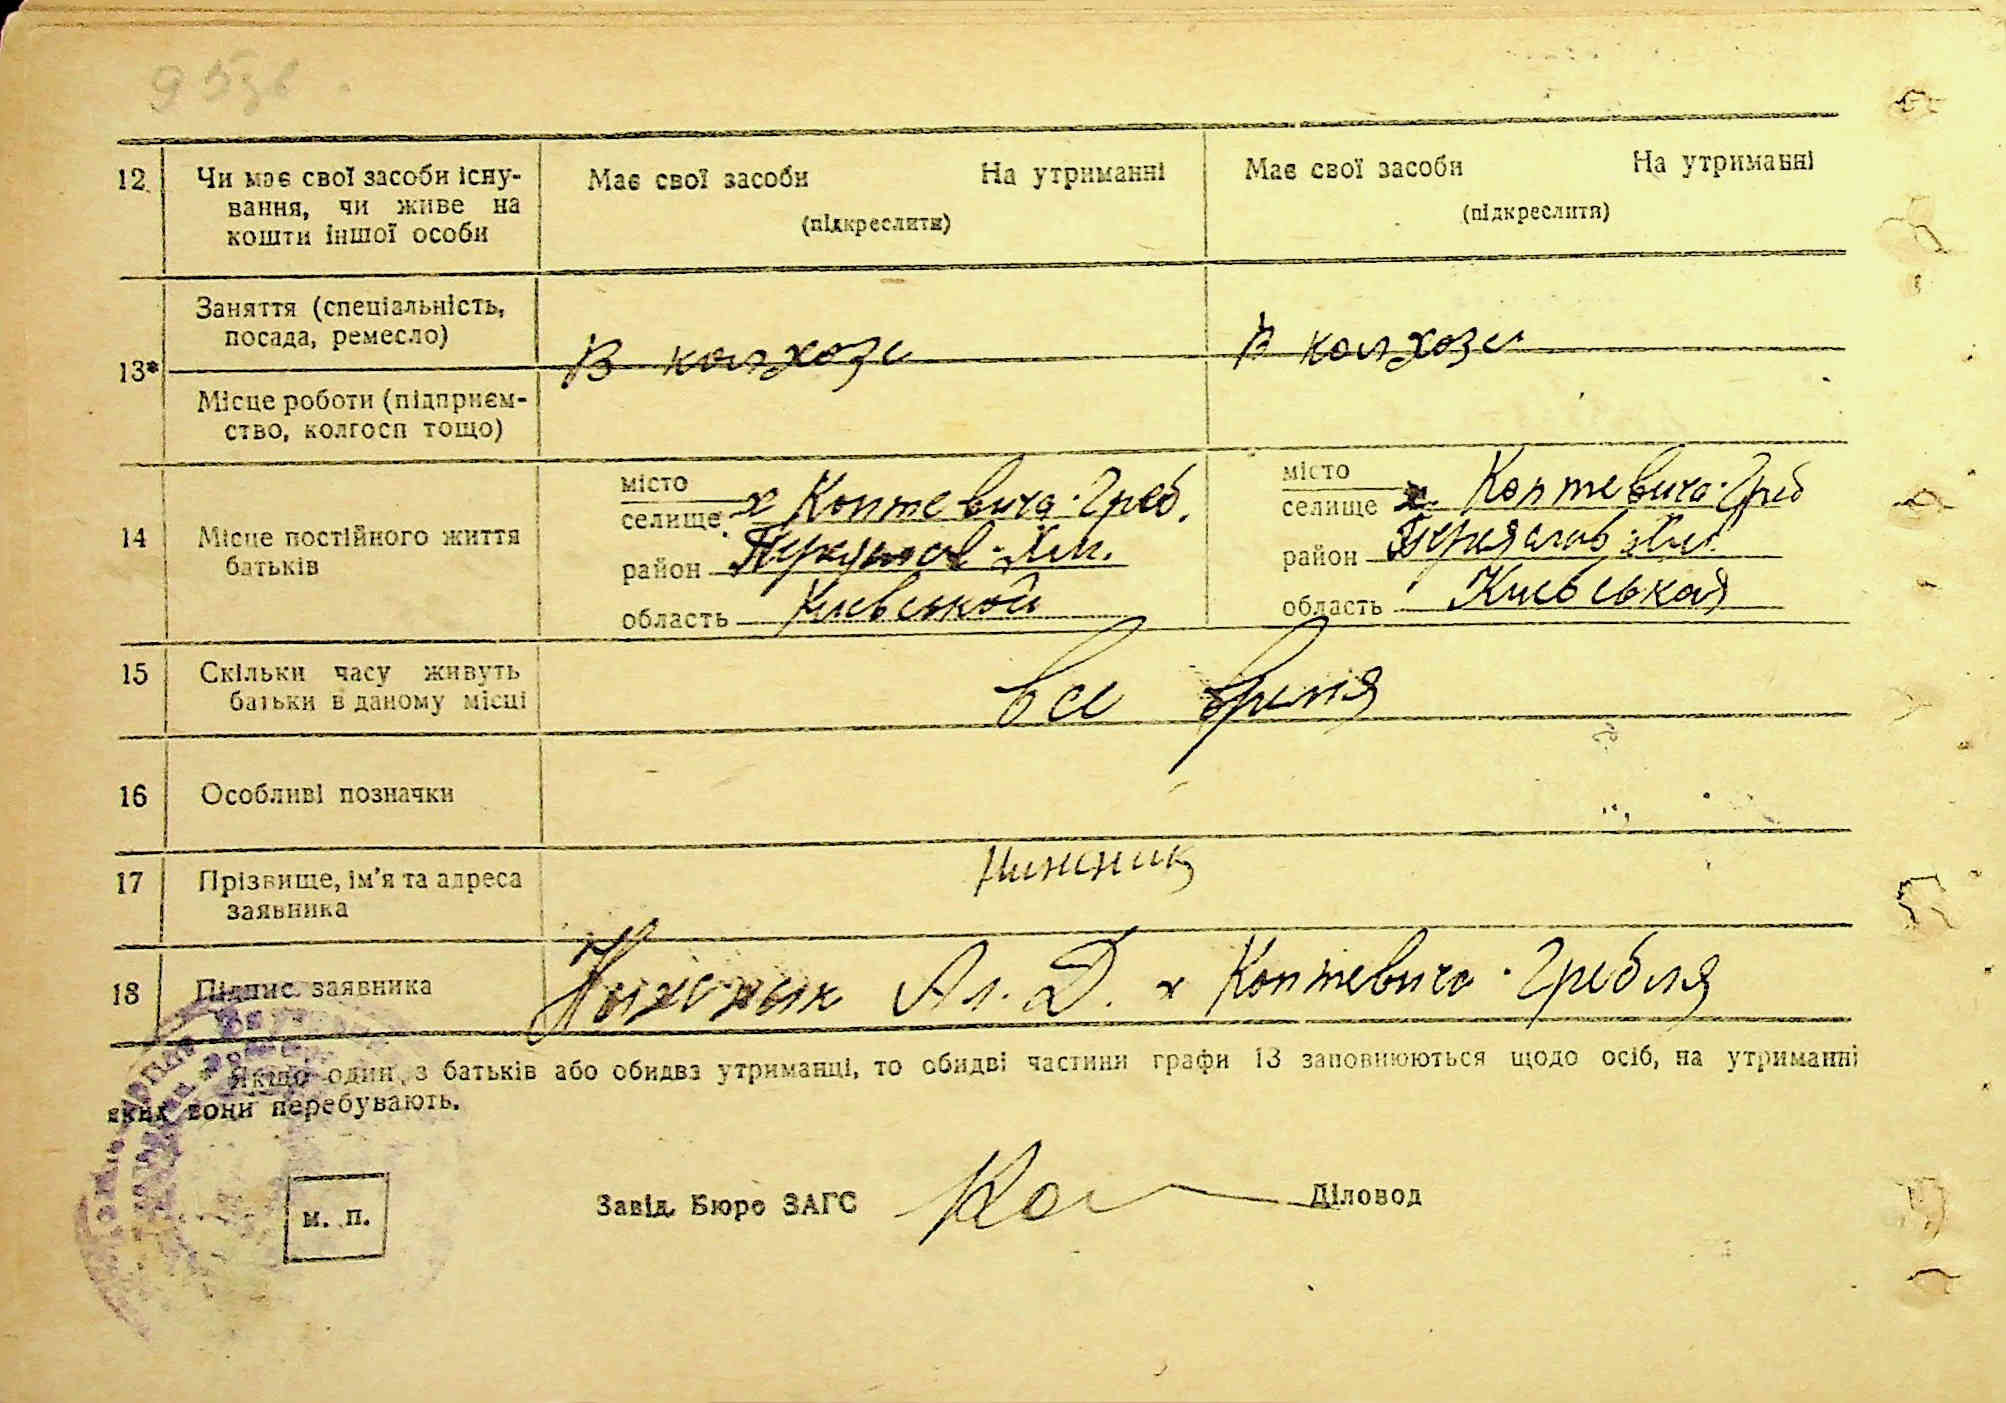 95зв.
12 Чи має свої засоби існування, чи живе на кошти іншої особи
Має свої засоби На утриманні
(підкреслити)
Має свої засоби На утриманні
(підкреслити)
13*
Заняття (спеціальність,
посада, ремесло)
В колхозе
В колхозе
Місце роботи (підприєм-
ство, колгосп тощо)
14 Місце постійного життя
батьків
місто
селище х Коптевича-Греб.
район
область Киевской
місто
селище х. Коптевича-Греб
район Переяслав-Хм.
область Киевськая
15 Скільки часу живуть
батьки в даному місці
все время
16 Особливі позначки
17 Прізвище, ім'я та адреса
заявника
Нижник
18 Підпис заявника
Нижник Ал. Д. х Коптевича-Гребля
Якщо один з батьків або обидва утриманці, то обидві частини графи 13 заповнюються щодо осіб, на утриманні
яких вони перебувають.
м. п.
Завід. Бюро ЗАГС Діловод